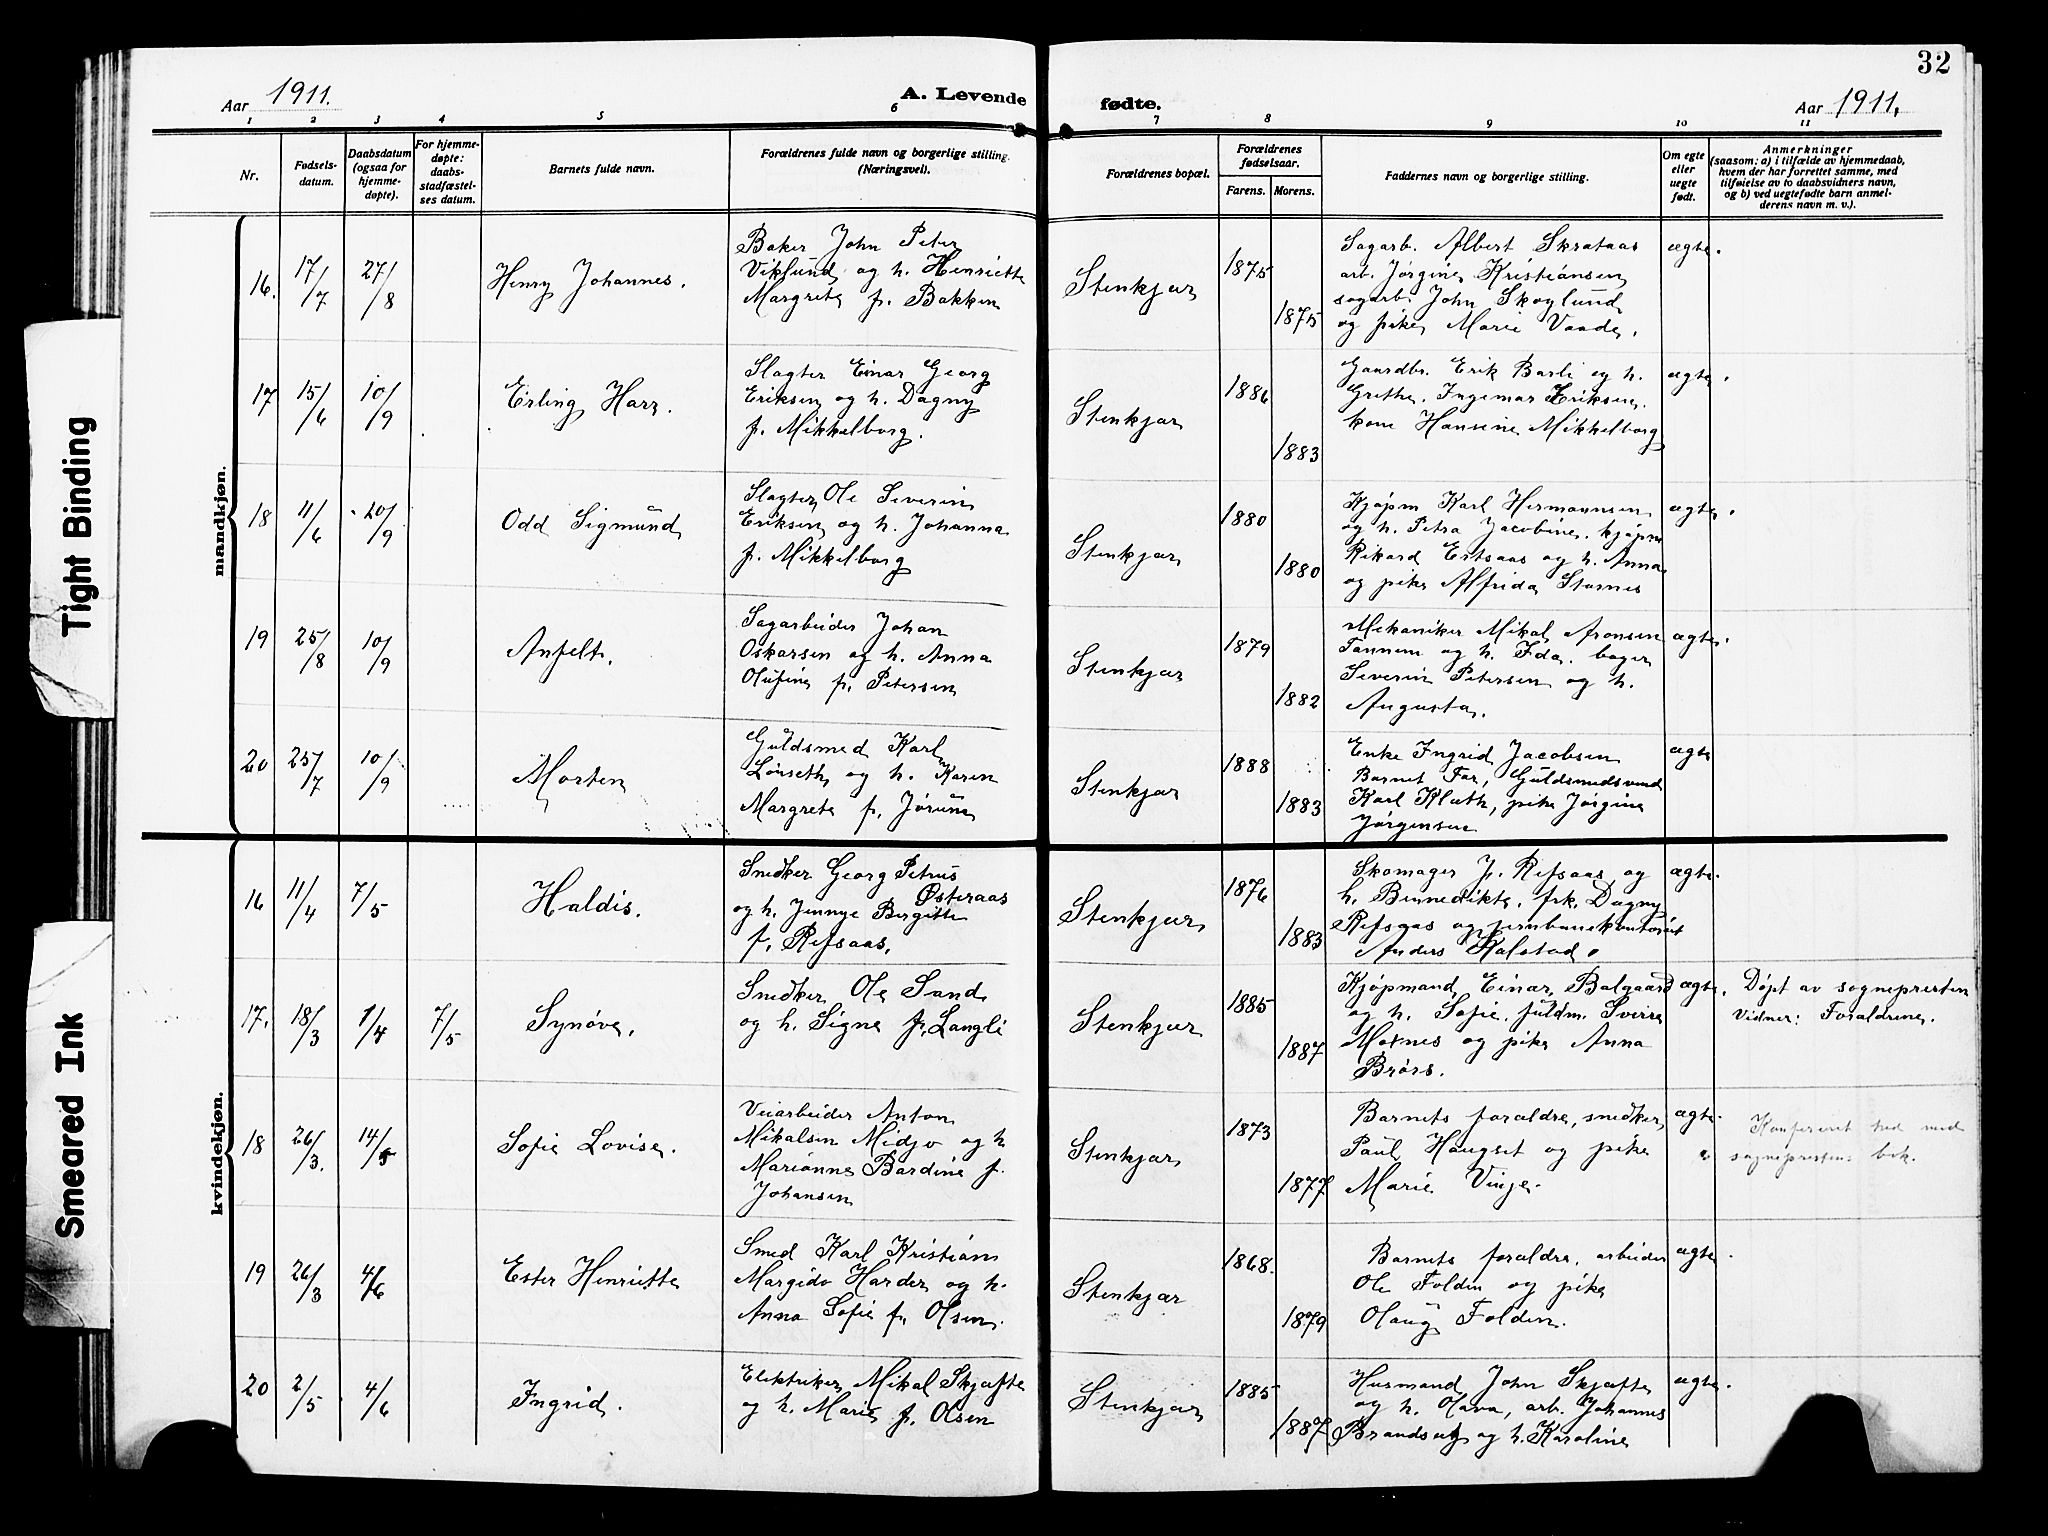 32
Aar 1911.
A. Levende fødte.
Aar 1911.
1 2 3 4 5 6 7 8 9 10 11
Nr.
Fødsels-
datum.
Daabsdatum
(ogsaa for
hjemme-
døpte).
For hjemme-
døpte:
daabs-
stadfæstel-
ses datum.
Barnets fulde navn.
Forældrenes fulde navn og borgerlige stilling.
(Næringsvei).
Forældrenes bopæl.
Forældrenes
fødselsaar.
Farens. Morens.
Faddernes navn og borgerlige stilling.
Om egte
eller
uegte
født.
Anmerkninger
(saasom: a) i tilfælde av hjemmedaab,
hvem der har forrettet samme, med
tilføielse av to daabsvidners navn,
og b) ved uegtefødte barn anmel-
derens navn m. v.).
mandkjøn.
16. 17/7 27/8
Henry Johannes.
Baker John Peter
Viklund og h. Henriette
Margrete f. Bakken
Stenkjær
1875
1875
Sagarb. Albert Skrataas
arb. Jørgine Kristiansen
sagarb. John Skoglund
og pike Marie Vaade.
ægte.
17 15/6 10/9
Erling Harr.
Slagter Einar Georg
Eriksen og h. Dagny
f. Mikkelborg.
Stenkjær
1886
1883
Gaardbr. Erik Barli og h.
Grethe. Ingemar Eriksen.
kone Hansine Mikkelborg
ægte.
18 11/6 20/9
Odd Sigmund
Slagter Ole Severin
Eriksen og h. Johanna
f. Mikkelborg
Stenkjær
1880
1880
Kjøpm Karl Hermannsen
og h. Petra Jacobine. kjøpm
Rikard Ertsaas og h. Anna
og pike Alfrida Stornes
ægte.
19 25/8 10/9
Anfelt.
Sagarbeider Johan
Oskarsen og h. Anna
Olufine f. Petersen
Stenkjær
1879
1882
Mekaniker Mikal Aronsen
Tannem og h. Ida. bager
Severin Petersen og h.
Augusta.
ægte.
20 25/7 10/9
Morten
Guldsmed Karl
Lønseth og h. Karen
Margrete f. Jørum
Stenkjær
1888
1883
Enke Ingrid Jacobsen
Barnet Far, Guldsmedsvend
Karl Kluth, pike Jørgine
Jørgensen
ægte
kvindekjøn.
16 11/4 7/5
Haldis.
Snedker Georg Petrus
Østeraas
og h. Jennye Birgitte
f. Refsaas.
Stenkjær
1876
1883
Skomager J. Refsaas og
h. Bennedikte. frk. Dagny
Refsaas og jernbanekontorist
Anders Halstad.
ægte.
17. 18/3 1/4 7/5
Synøve.
Snedker Ole Sand
og h. Signe f. Langli
Stenkjær
1885
1887
Kjøpmand Einar Balgaard
og h. Sofie. fuldm. Sverre
Moxnes og pike Anna
Brørs.
ægte.
Døpt av sognepresten
Vidner: Forældrene.
18 26/3. 14/5
Sofie Lovise.
Veiarbeider Anton
Mikalsen Midjo og h
Marianne Bardine f.
Johansen
Stenkjær
1873
1877
Barnets forældre, snedker
Paul Haugset og pike
Marie Vinje.
ægte.
Konfereret hed med
sogneprestens bok.
19 26/3 4/6
Ester Henriette
Smed Karl Kristian
Margido Harder og h.
Anna Sofie f. Olsen.
Stenkjær
1868.
1879
Barnets forældre, arbeider
Ole Folden og pike
Olaug Folden.
ægte.
20 2/5 4/6
Ingrid.
Elektriker Mikal Skjefte
og h. Marie f. Olsen
Stenkjær
1885
1887
Husmand John Skjefte
og h. Olava, arb. Johannes
Brandseg og h. Karoline
ægte.
Tight Binding
Smeared Ink